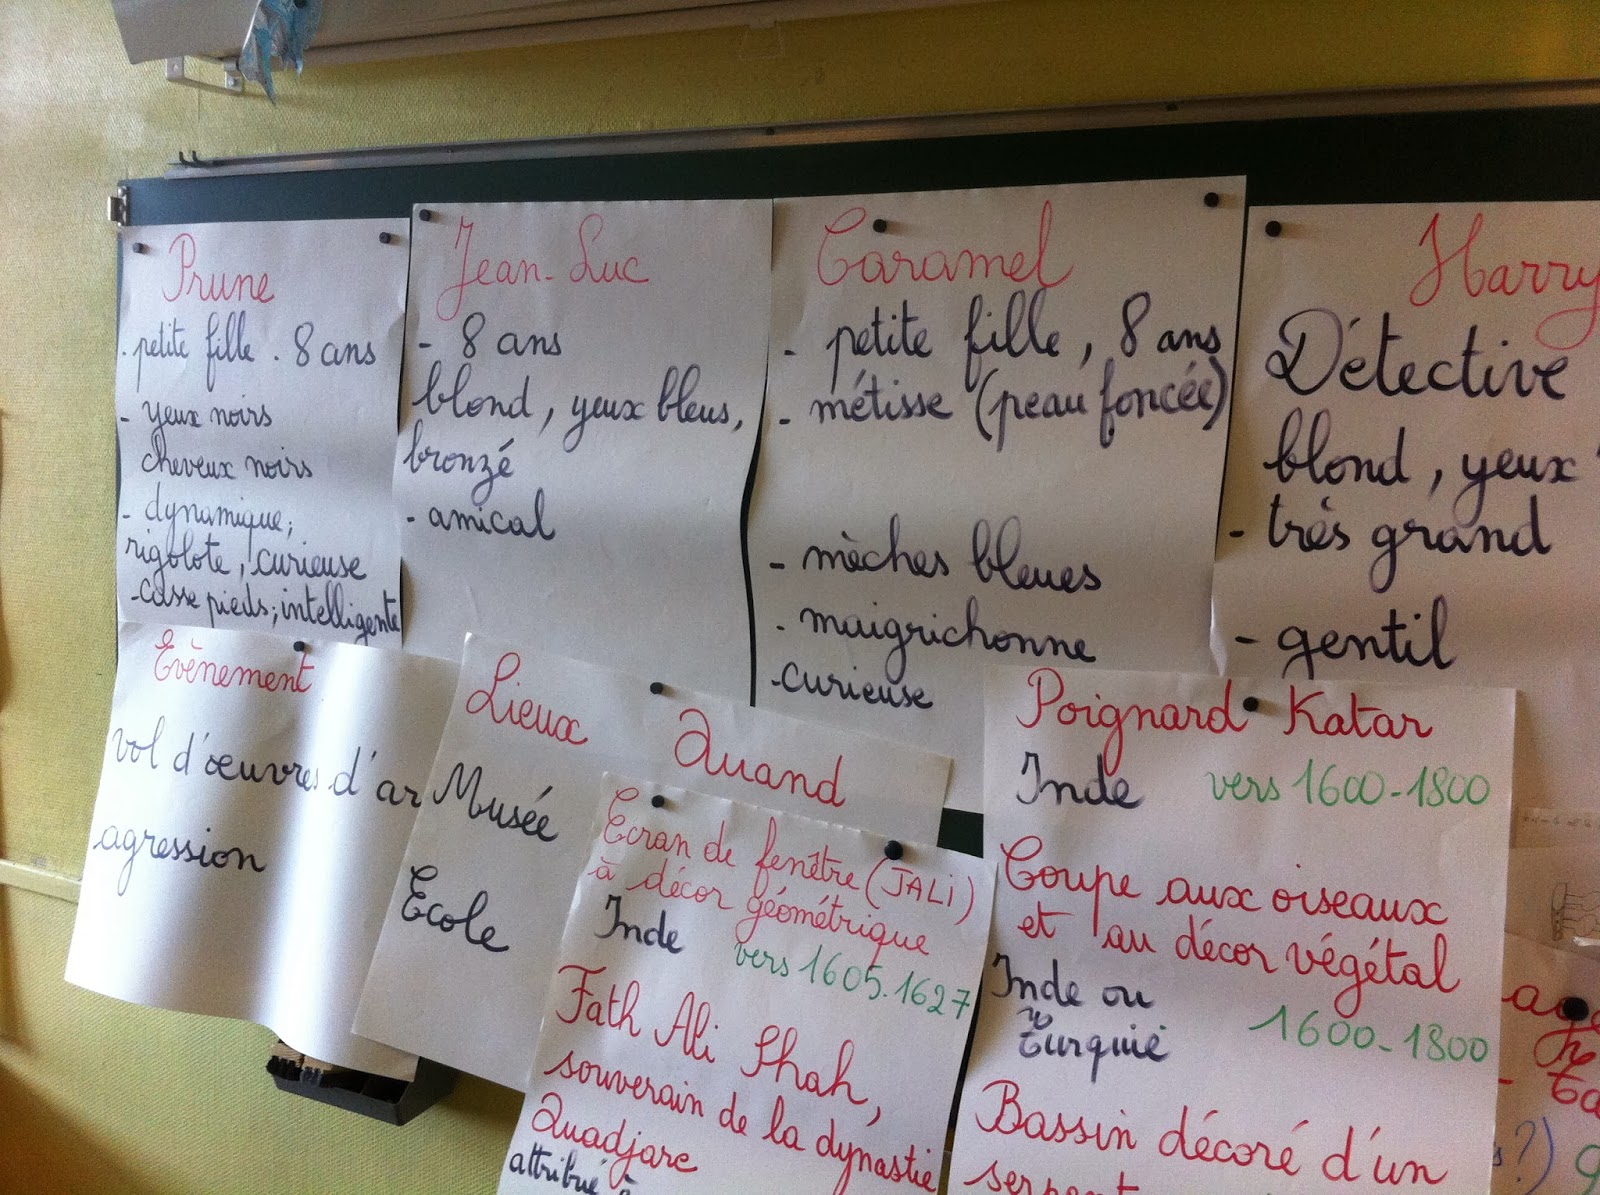 Prune
. petite fille . 8 ans
- yeux noirs
cheveux noirs
- dynamique;
rigolote, curieuse
- casse pieds; intelligente
Jean-Luc
- 8 ans
blond, yeux bleus,
bronzé
- amical
Caramel
- petite fille, 8 ans
- métisse (peau foncée)
- mèches bleues
- maigrichonne
- curieuse
Harry
Détective
blond, yeux
- très grand
- gentil
Evènement
vol d'œuvres d'ar
agression
Lieux
Musée
Ecole
Quand
Ecran de fenêtre (JALI)
à décor géométrique
Inde vers 1605-1627
Fath Ali Shah,
souverain de la dynastie
Quadjare
attribué à
Poignard Katar
Inde vers 1600-1800
Coupe aux oiseaux
et au décor végétal
Inde ou
Turquie 1600-1800
Bassin décoré d'un
serpent